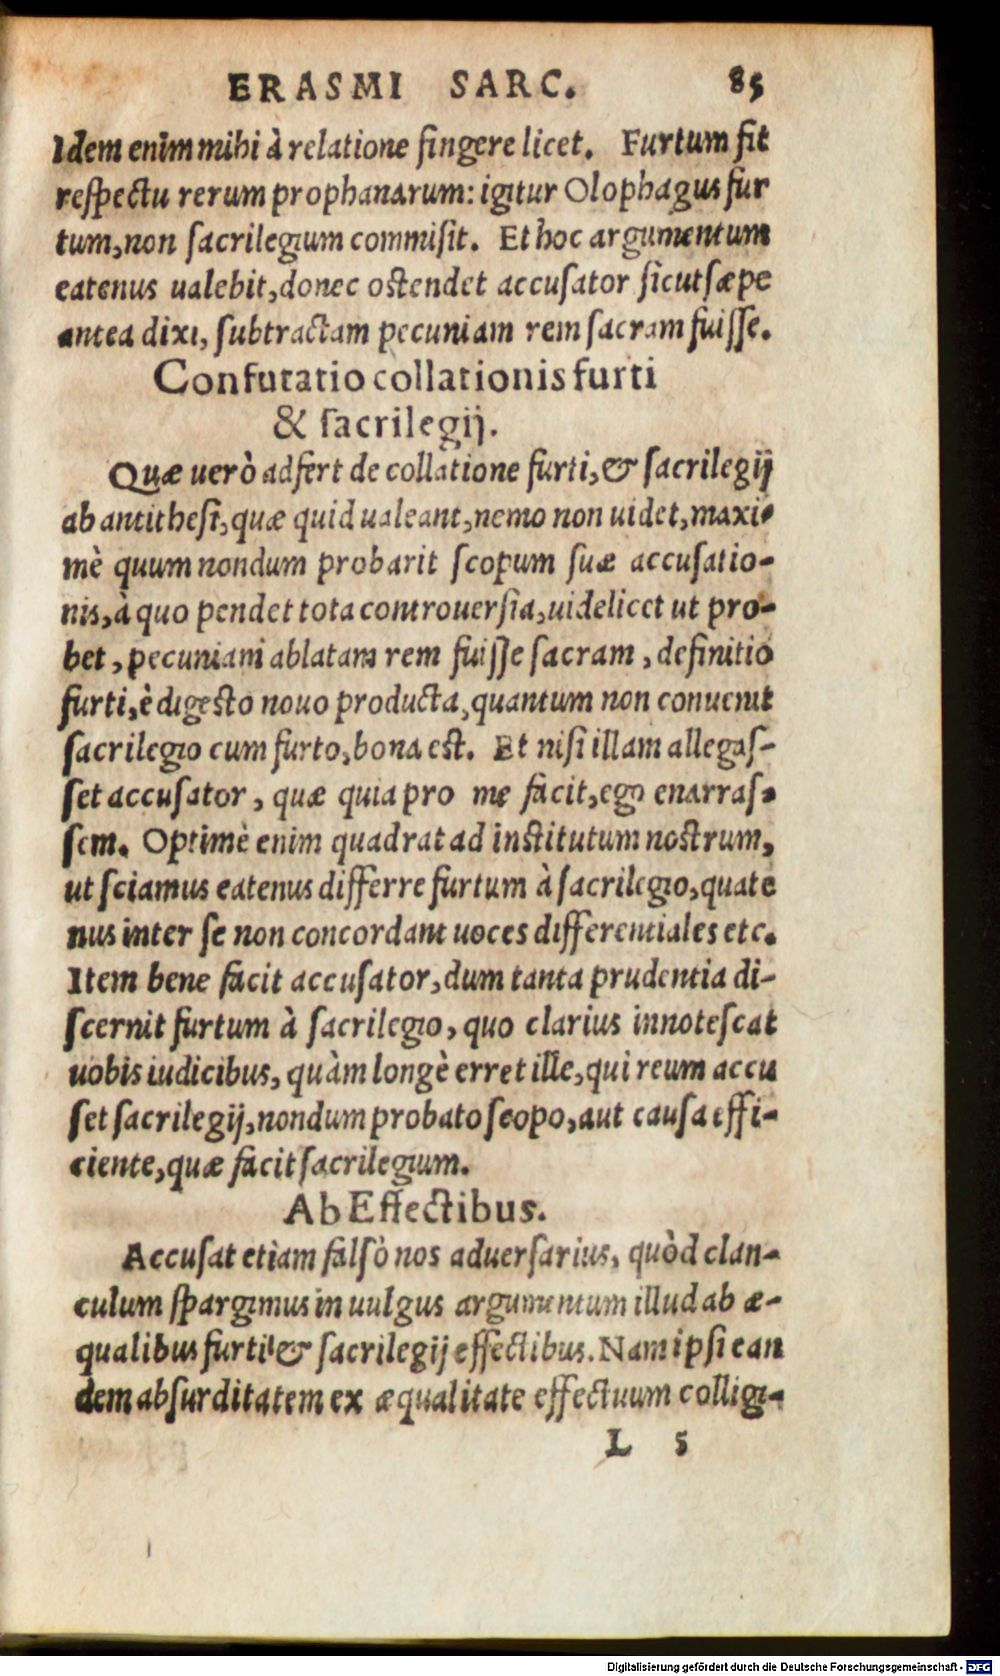 ERASMI SARC. 85
Idem enim mihi à relatione fingere licet. Furtum fit
respectu rerum prophanarum: igitur Olophagus fur
tum, non sacrilegium commisit. Et hoc argumentum
eatenus ualebit, donec ostendet accusator sicut sæpe
antea dixi, subtractam pecuniam rem sacram fuisse.
Confutatio collationis furti
& sacrilegij.
Quæ uerò adfert de collatione furti, & sacrilegij
ab antithesi, quæ quid ualeant, nemo non uidet, maxi-
mè quum nondum probarit scopum suæ accusatio-
nis, à quo pendet tota controuersia, uidelicet ut pro-
bet, pecuniam ablatam rem fuisse sacram, definitio
furti, è digesto nouo producta, quantum non conuenit
sacrilegio cum furto, bona est. Et nisi illam allegas-
set accusator, quæ quia pro me facit, ego enarras-
sem. Optimè enim quadrat ad institutum nostrum,
ut sciamus eatenus differre furtum à sacrilegio, quate
nus inter se non concordant uoces differentiales etc.
Item bene facit accusator, dum tanta prudentia di-
scernit furtum à sacrilegio, quo clarius innotescat
uobis iudicibus, quàm longè erret ille, qui reum accu
set sacrilegij, nondum probato scopo, aut causa effi-
ciente, quæ facit sacrilegium.
Ab Effectibus.
Accusat etiam falsò nos aduersarius, quòd clan-
culum spargimus in uulgus argumentum illud ab æ-
qualibus furti & sacrilegij effectibus. Nam ipsi ean
dem absurditatem ex æqualitate effectuum colligi-
L 5
Digitalisierung gefördert durch die Deutsche Forschungsgemeinschaft - DFG